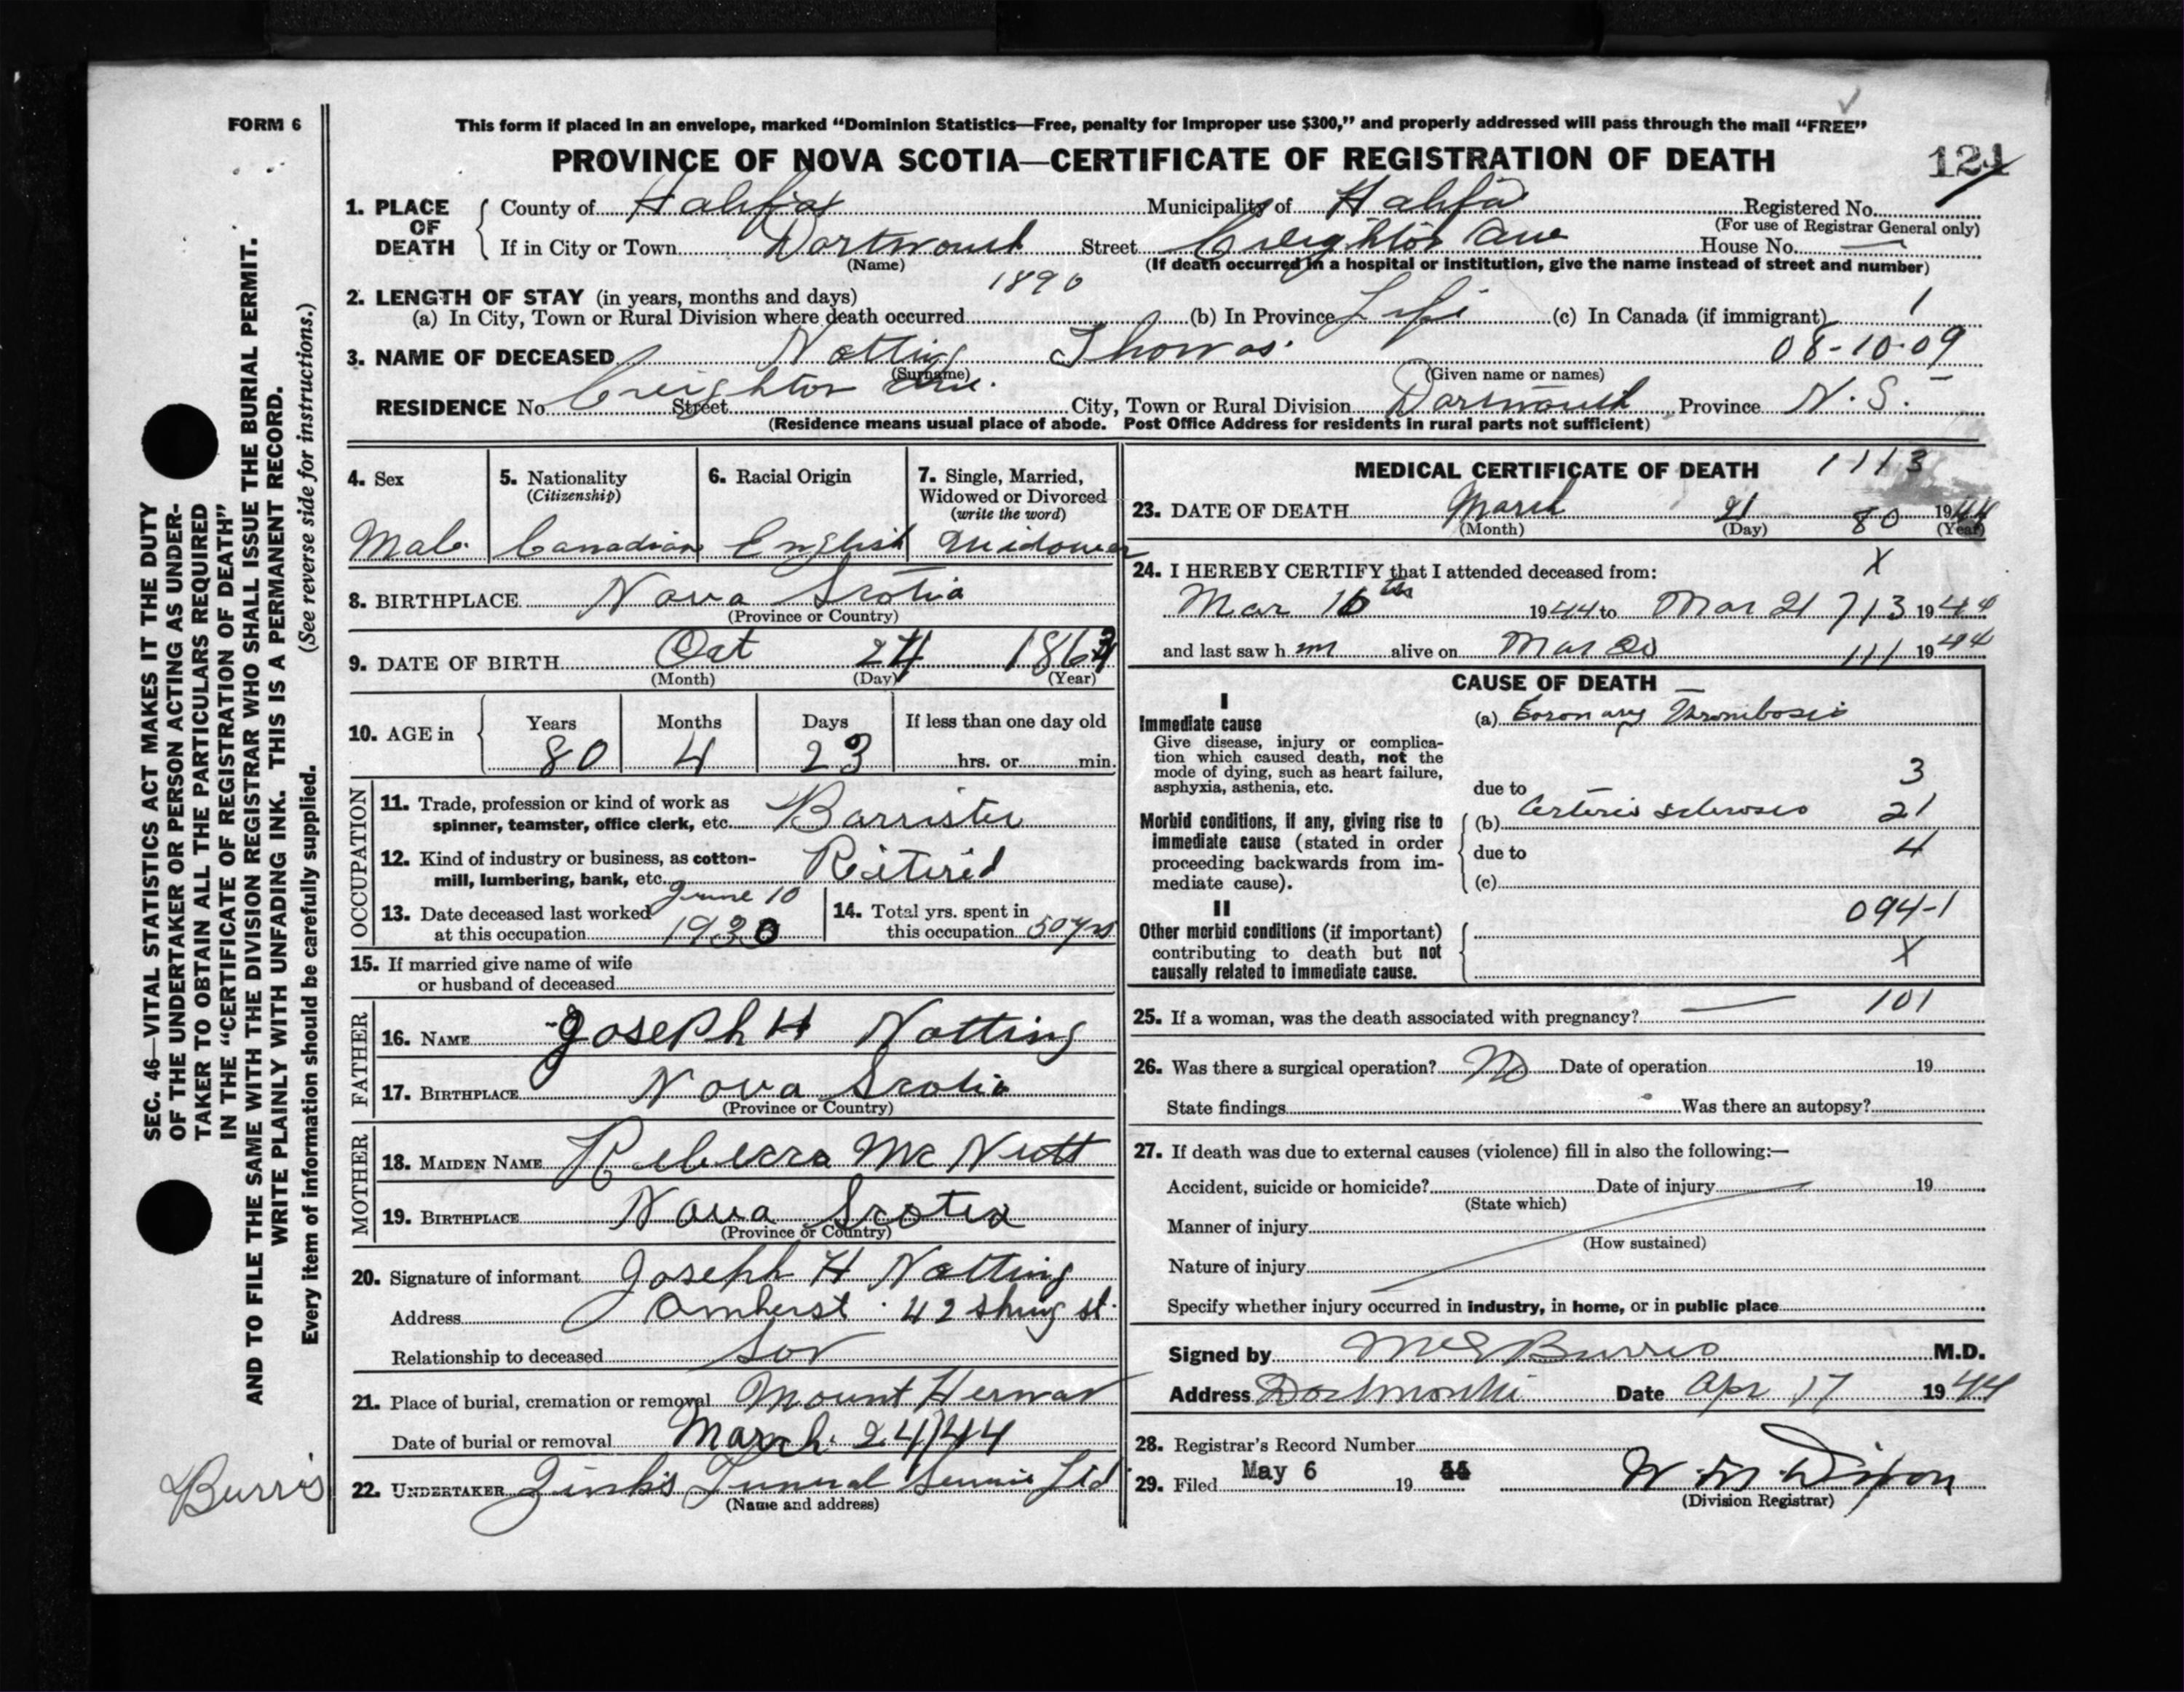 FORM 6
This form if placed in an envelope, marked “Dominion Statistics—Free, penalty for improper use $300,” and properly addressed will pass through the mail “FREE”
PROVINCE OF NOVA SCOTIA—CERTIFICATE OF REGISTRATION OF DEATH
121
1. PLACE OF DEATH
County of Halifax Municipality of Halifax Registered No.
(For use of Registrar General only)
If in City or Town Dartmouth Street Creighton Ave House No. —
(Name) (If death occurred in a hospital or institution, give the name instead of street and number)
2. LENGTH OF STAY (in years, months and days) 1890
(a) In City, Town or Rural Division where death occurred (b) In Province Life (c) In Canada (if immigrant) 1
3. NAME OF DECEASED Notting Thomas 08-10-09
(Surname) (Given name or names)
RESIDENCE No Creighton Ave. Street City, Town or Rural Division Dartmouth Province N.S.
(Residence means usual place of abode. Post Office Address for residents in rural parts not sufficient)
4. Sex
Male
5. Nationality
(Citizenship)
Canadian
6. Racial Origin
English
7. Single, Married,
Widowed or Divorced
(write the word)
Widower
8. BIRTHPLACE Nova Scotia
(Province or Country)
9. DATE OF BIRTH Oct 24 186
(Month) (Day) (Year)
10. AGE in
Years Months Days If less than one day old
80 4 23 hrs. or min.
OCCUPATION
11. Trade, profession or kind of work as
spinner, teamster, office clerk, etc. Barrister
12. Kind of industry or business, as cotton-
mill, lumbering, bank, etc. Retired
13. Date deceased last worked June 10
at this occupation 1930
14. Total yrs. spent in
this occupation 50 yrs
15. If married give name of wife
or husband of deceased
FATHER
16. NAME Joseph H Notting
17. BIRTHPLACE Nova Scotia
(Province or Country)
MOTHER
18. MAIDEN NAME Rebecca Mc Nutt
19. BIRTHPLACE Nova Scotia
(Province or Country)
20. Signature of informant Joseph H Notting
Address Amherst. 42 st.
Relationship to deceased Son
21. Place of burial, cremation or removal Mount Herman
Date of burial or removal March. 24/44
22. UNDERTAKER Zink's Funeral Service Ltd
(Name and address)
MEDICAL CERTIFICATE OF DEATH 1113
23. DATE OF DEATH March 21 80 1944
(Month) (Day) (Year)
24. I HEREBY CERTIFY that I attended deceased from: X
Mar 16th 1944 to Mar 21 713 1944
and last saw h m alive on Mar 111 1944
CAUSE OF DEATH
I
Immediate cause
Give disease, injury or complica-
tion which caused death, not the
mode of dying, such as heart failure,
asphyxia, asthenia, etc.
(a) Coronary Thrombosis
due to 3
Morbid conditions, if any, giving rise to
immediate cause (stated in order
proceeding backwards from im-
mediate cause).
(b) Arterio sclerosis 21
due to 4
(c)
II
Other morbid conditions (if important)
contributing to death but not
causally related to immediate cause.
094-1
X
25. If a woman, was the death associated with pregnancy? — 101
26. Was there a surgical operation? No Date of operation 19
State findings Was there an autopsy?
27. If death was due to external causes (violence) fill in also the following:—
Accident, suicide or homicide? Date of injury 19
(State which)
Manner of injury
(How sustained)
Nature of injury
Specify whether injury occurred in industry, in home, or in public place
Signed by Burris M.D.
Address Dartmouth Date Apr 17 1944
28. Registrar's Record Number
29. Filed May 6 19 44
(Division Registrar)
SEC. 46—VITAL STATISTICS ACT MAKES IT THE DUTY
OF THE UNDERTAKER OR PERSON ACTING AS UNDER-
TAKER TO OBTAIN ALL THE PARTICULARS REQUIRED
IN THE “CERTIFICATE OF REGISTRATION OF DEATH”
AND TO FILE THE SAME WITH THE DIVISION REGISTRAR WHO SHALL ISSUE THE BURIAL PERMIT.
WRITE PLAINLY WITH UNFADING INK. THIS IS A PERMANENT RECORD.
Every item of information should be carefully supplied. (See reverse side for instructions.)
Burris